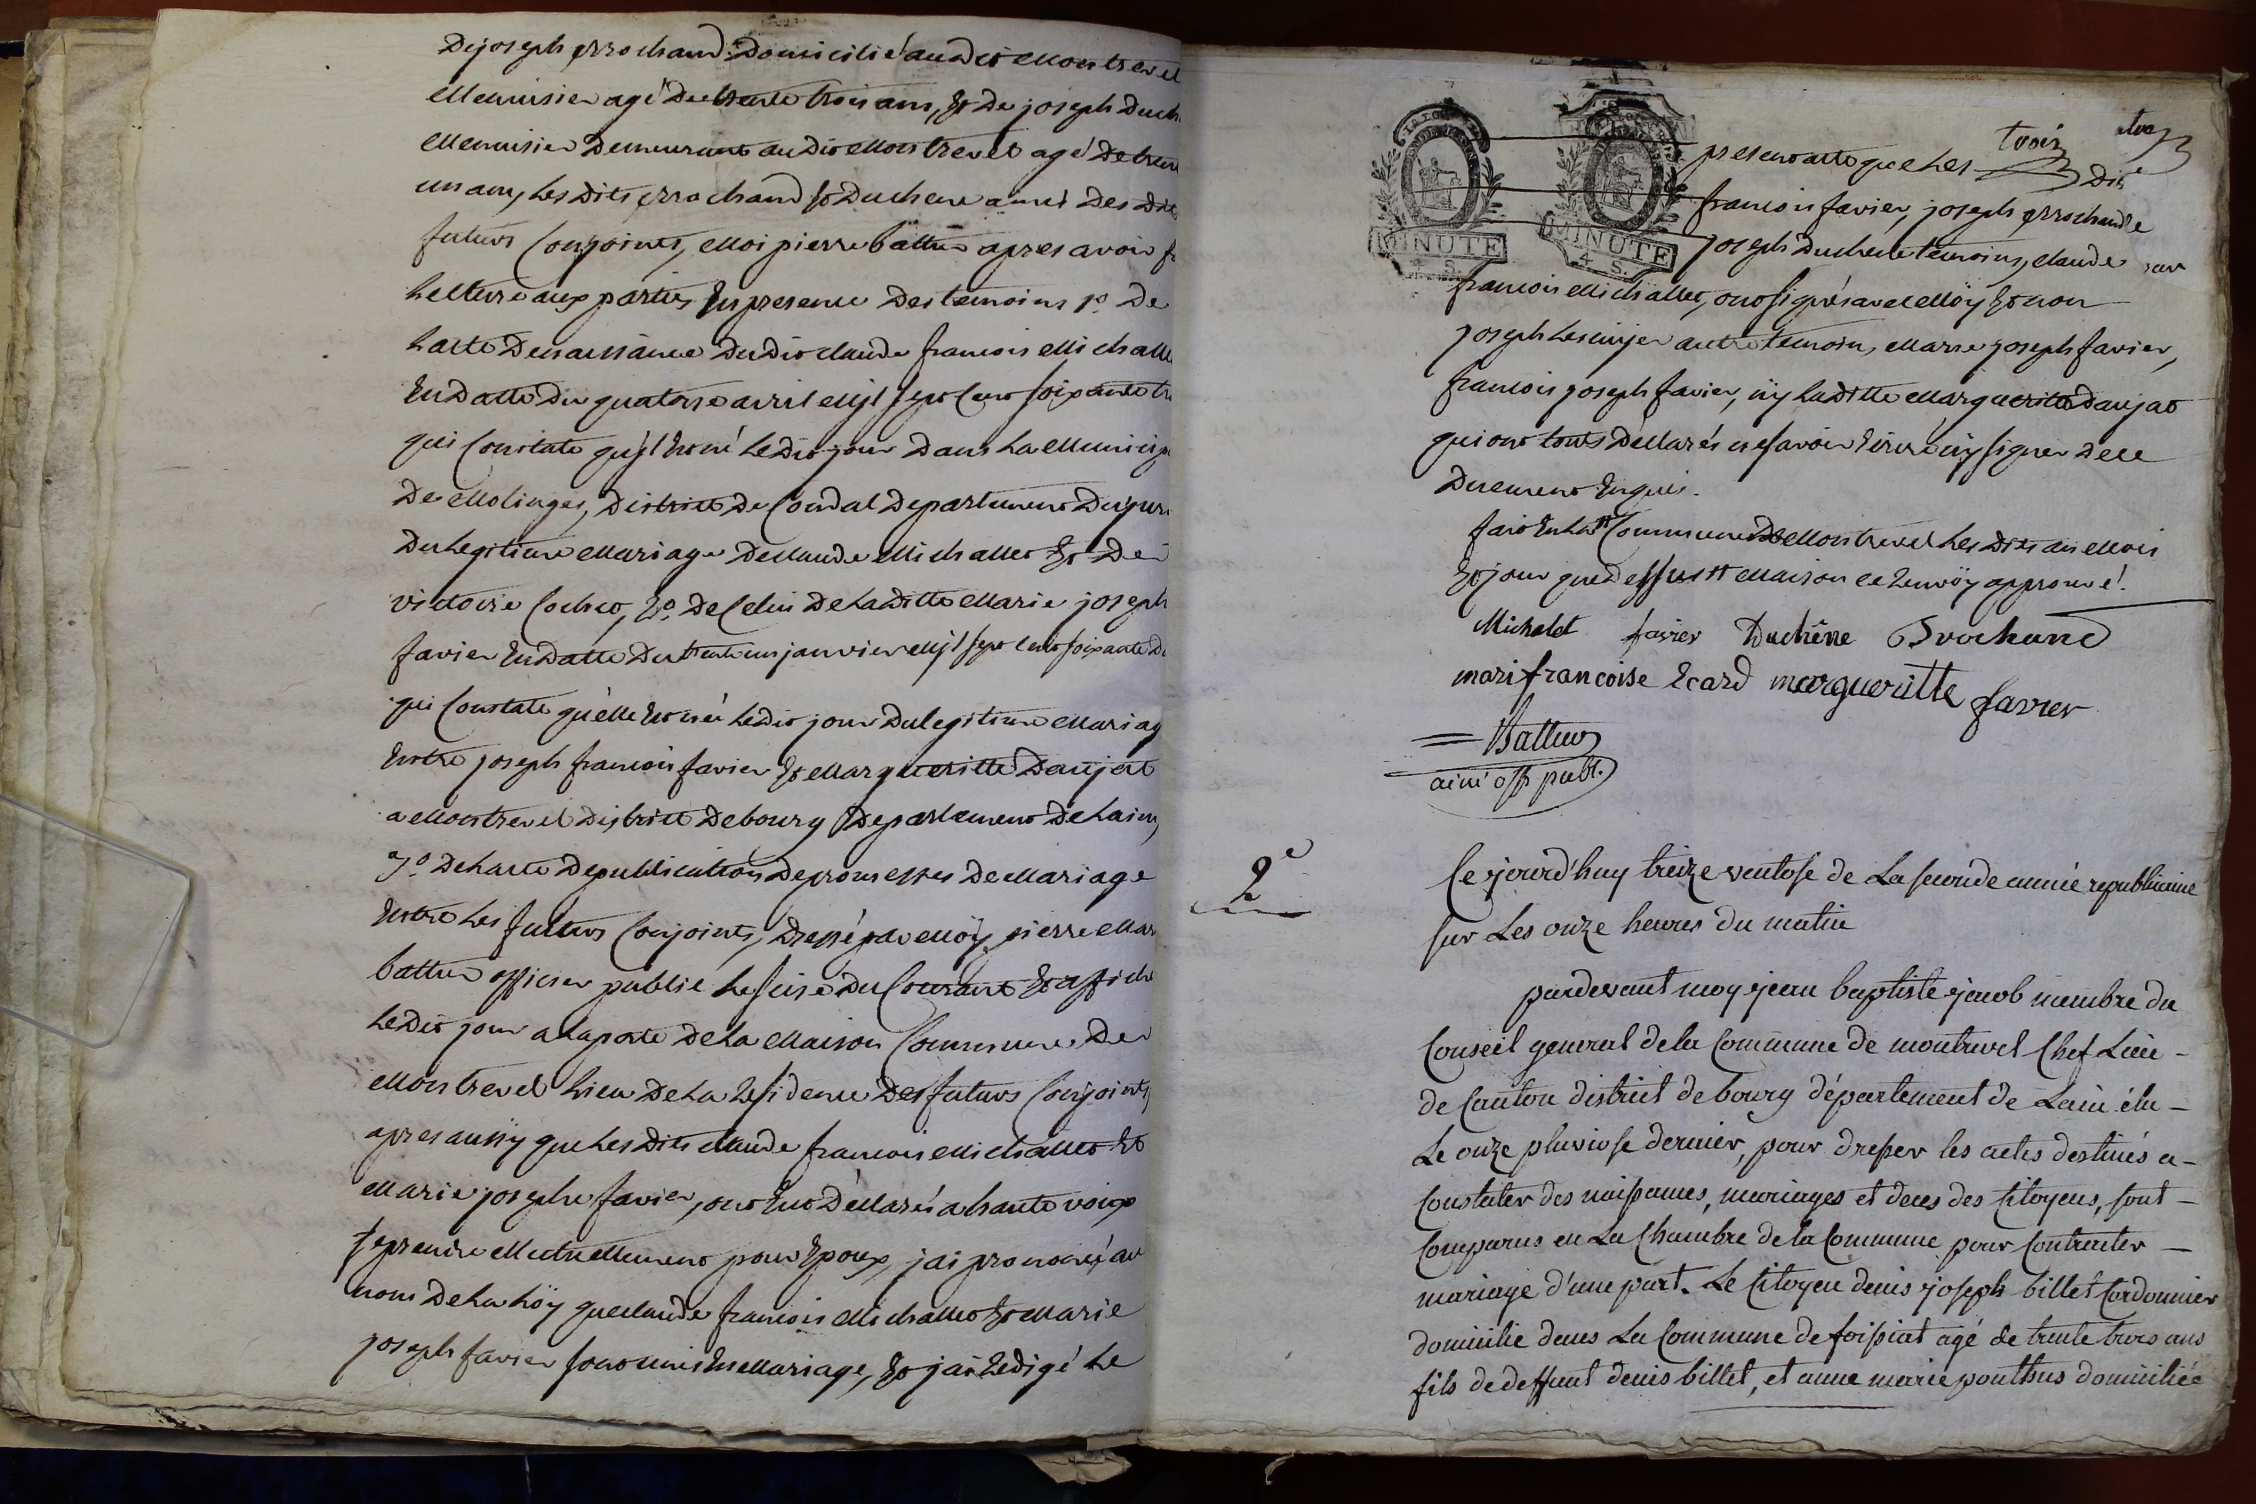 De joseph Brochand Domicilié audit Montrevel
Menuisier agé de trente trois ans, Et De joseph Duch
Menuisier Demeurant audit Montrevel agé de trent
un ans, Les Dits Brochand Et Duchene amis Des Dits
futurs Conjoints, Moi pierre battur apres avoir f
Lecture aux parties En presence Des temoins 1º De
L'acte De naissance Dudit claude francois Michall
En Datte Du quatorse avril Mil Sept Cent soixante tr
qui Constate qu'jl Est né Ledit jour Dans La Municip
De Molinges, District De Condat Departement Du jura
Du Legitime Mariage De Claude Michallet Et De
victoire Cochet, 2º. De Celui De La Ditte Marie joseph
favier En Datte Du trente un janvier Mil Sept Cent soixante D
qui Constate qu'elle Est née Ledit jour Du Legitime Mariag
Entre joseph francois favier Et Margueritte Daujat
a Montrevel District De bourg Departement De Lain,
3º De L'acte De publication De promesses De Mariage
Entre Les futurs Conjoints, Dressé par Moÿ pierre Mar
battur officier public Le seise Du Courant Et affiché
Ledit jour a La porte De La Maison Commune De
Montrevel Lieu De La Residence Des futurs Conjoints,
apres aussy que Les Dits claude francois Michallet Et
Marie josephe favier, ont Eut Déclarés a haute voix
se prendre Mutuellement pour Epoux, j'ai prononcé au
nom De La Loÿ que claude francois Michallet Et Marie
joseph favier sont unis En Mariage, Et j'ai Redigé Le
trois
present acte que Les Dits
francois favier, joseph Brochand Et
joseph Duchene temoins, claude
francois Michallet, ont signés avec Moÿ Et non
joseph autre temoin, Marie joseph favier,
francois joseph favier, nÿ La Ditte Margueritte Daujat
qui ont touts Déclarés ne savoir Ecrire nÿ signer De ce
Duement Enquis.
fait En La Commune De Montrevel Les Dits an Mois
Et jour que Dessus Maison ce Renvoÿ approuvé.
MINUTE
4 S.
MINUTE
4 S.
Michalet favier Duchêne Brochand
mari francoise Ecard margueritte favier
Battur
ainé off publ.
2e
Cejourd'huy treize ventose de La seconde année republicaine
sur Les onze heures du matin
pardevant moy jean baptiste jacob membre du
Conseil general de la Commune de montrevel Chef Lieu
de Canton district de bourg département de Lain élu
Le onze pluviose dernier, pour dresser les actes destinés a
Constater des naissances, mariages et deces des Citoyens, sont
Comparus en La Chambre de la Commune pour Contracter
mariage d'une part. Le Citoyen denis joseph billet Cordonnier
domicilie dans La Commune de foissiat agé de trente trois ans
fils de deffunt denis billet, et anne marie ponthus domiciliée